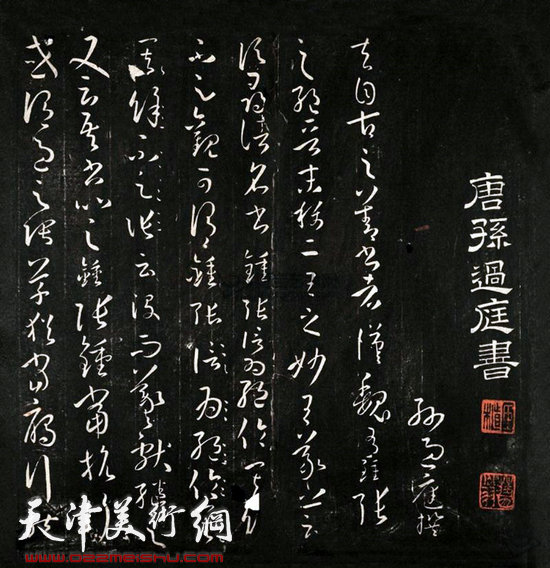 唐孫過庭書
孫過庭撰
夫自古之善書者漢魏有鍾張
之絕晉末稱二王之妙王羲之云
頃尋諸名書鍾張信為絕倫其餘
不足觀可謂鍾張信為絕倫
其餘不足觀云沒而羲獻繼之
又云吾書比之鍾張鍾當抗
或謂過之張草猶當鴈行
天津美術網